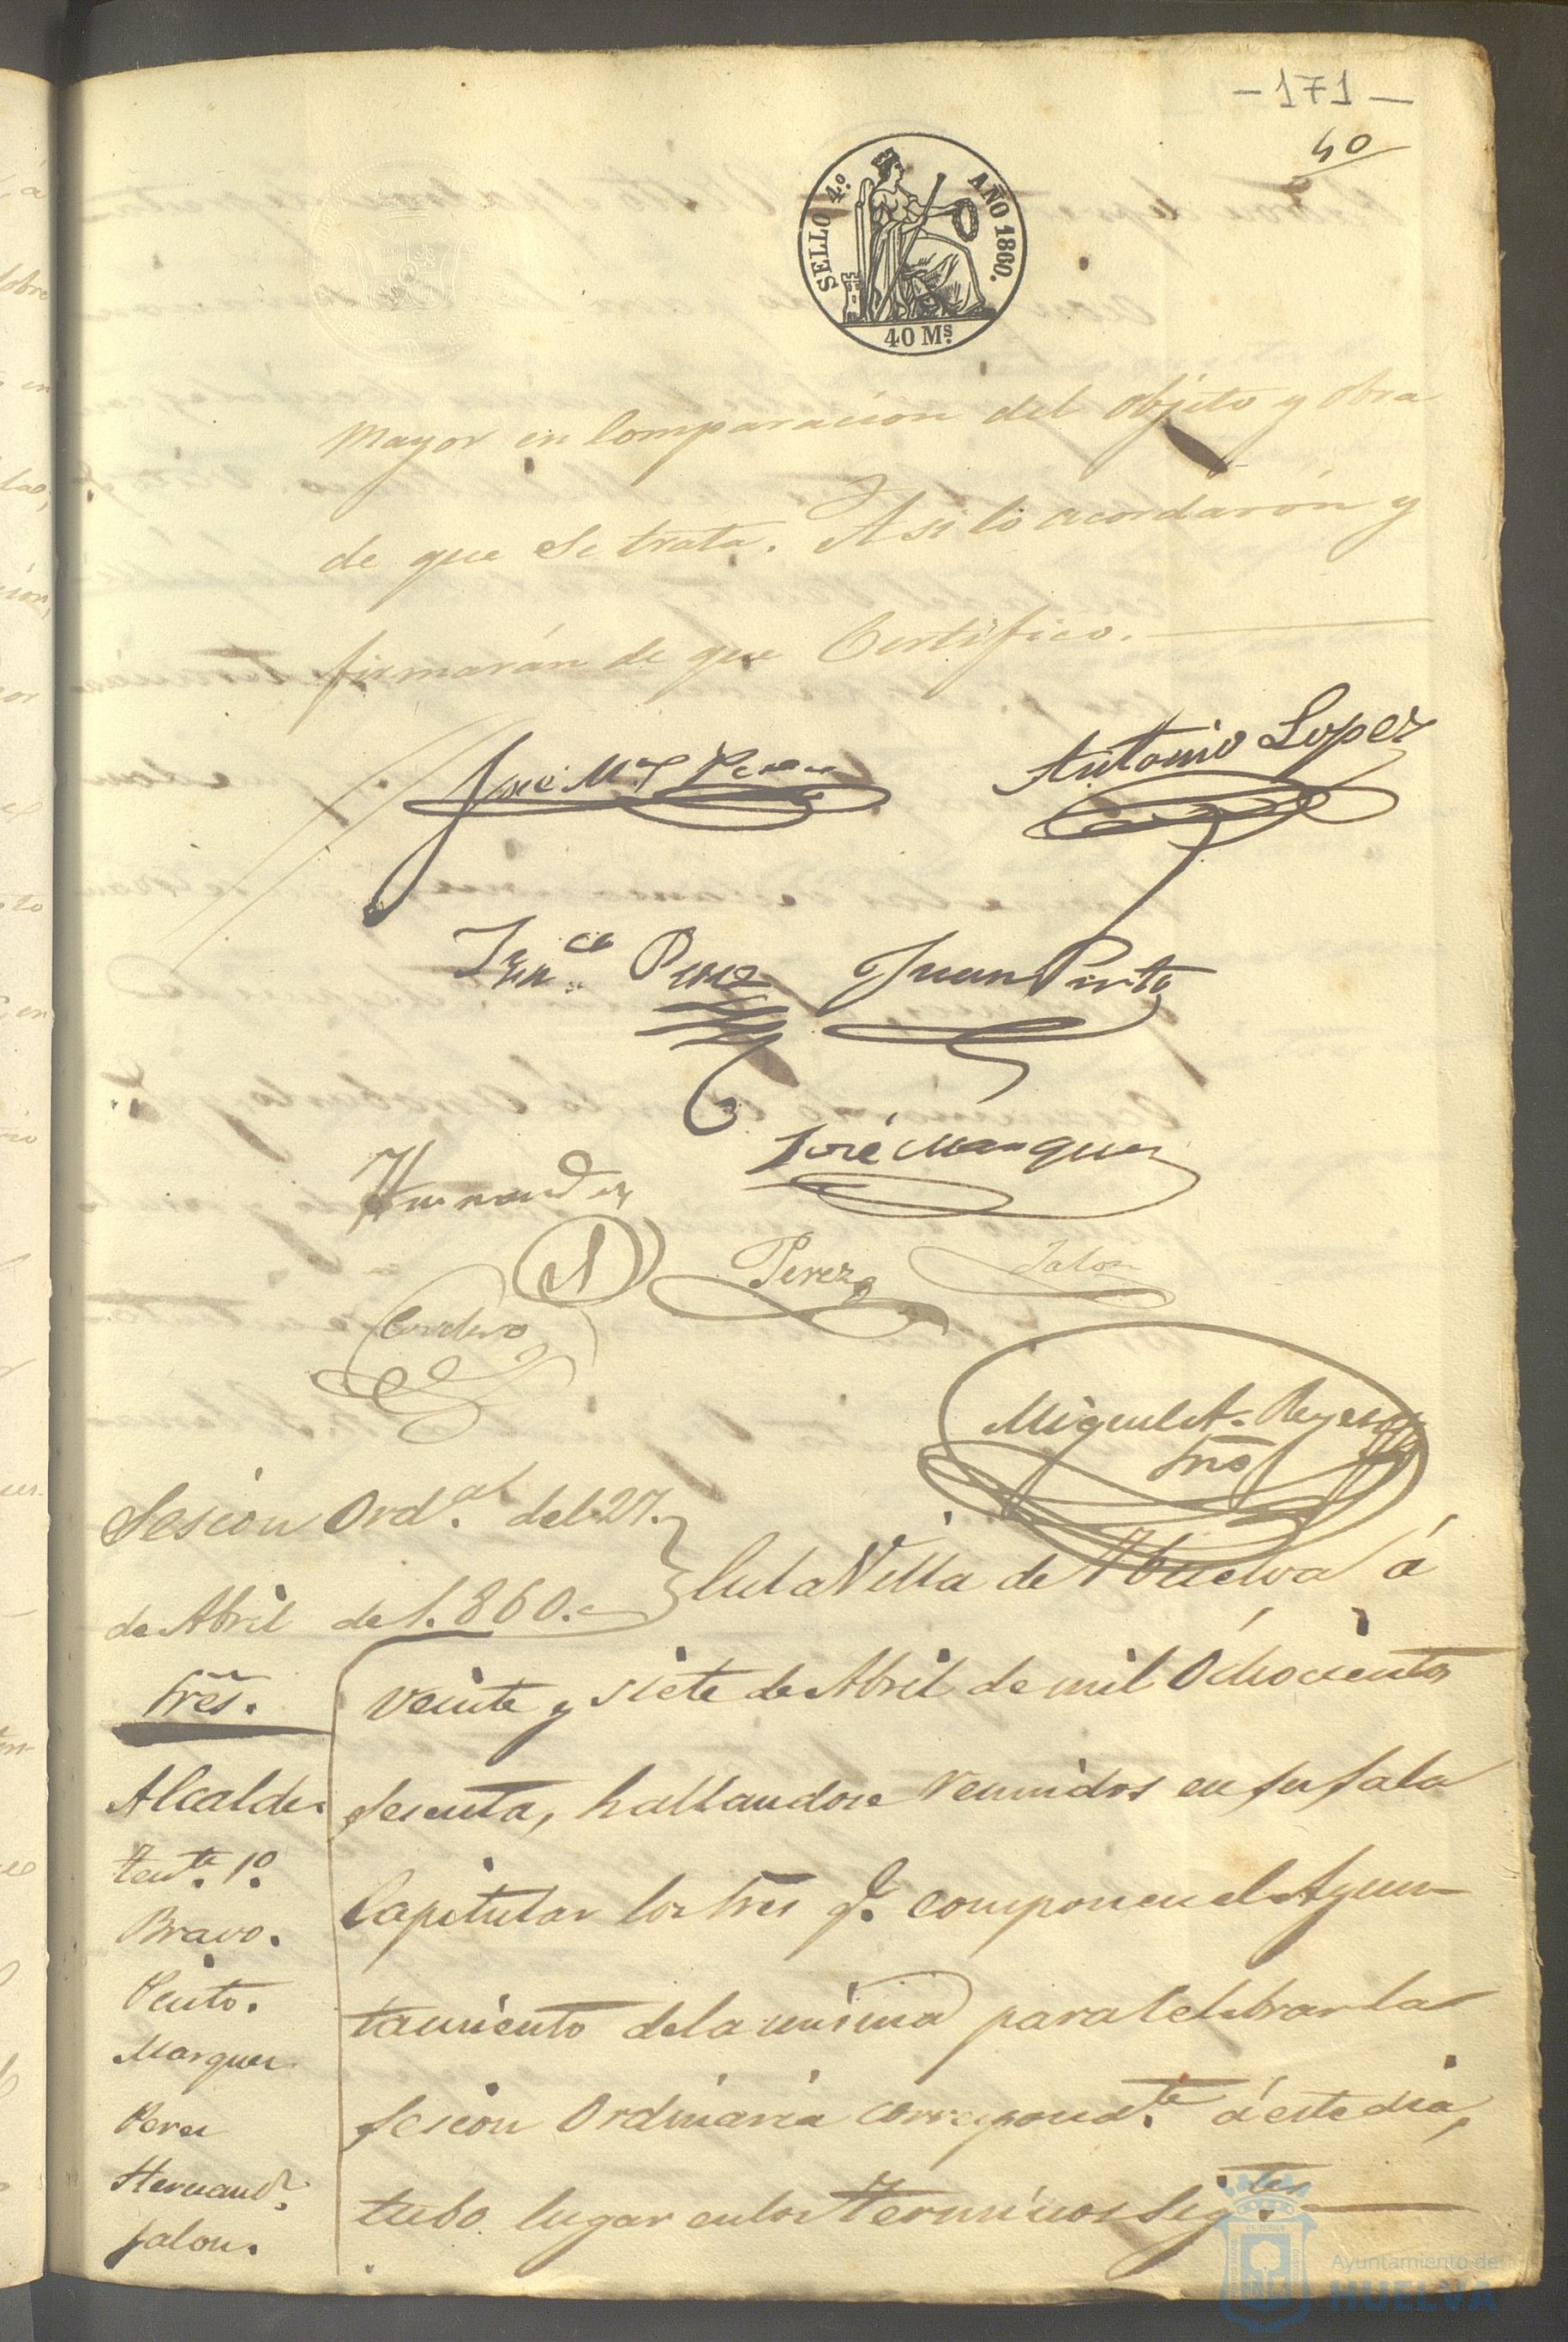 - 171 -
40
SELLO 4.º AÑO 1860.
40 Ms.
mayor en Comparacion del Objeto y Obra
de que se trata. Asi lo acordarón y
firmarán de que Certifico.
José Mª Perez
Antonio Lopez
Franco Perez Juan Pinto
José Marquez
Hernandez
Perez Jalon
Cordero
Miguel A. Reyes
Srio
Sesion Ordª del 27.
de Abril de 1.860.
En la Villa de Huelva á
Sres.
veinte y siete de Abril de mil Ochocientos
Alcalde.
sesenta, hallandose reunidos en su sala
tente. 1º.
Capitular los Sres q.e componen el Ayun-
Bravo.
tamiento de la misma para Celebrar la
Pinto.
Marquez
sesion Ordinaria correspondte. á este dia,
Perez
Hernandz.
tubo lugar en los terminos sigtes.
Jalon.
Ayuntamiento de
HUELVA